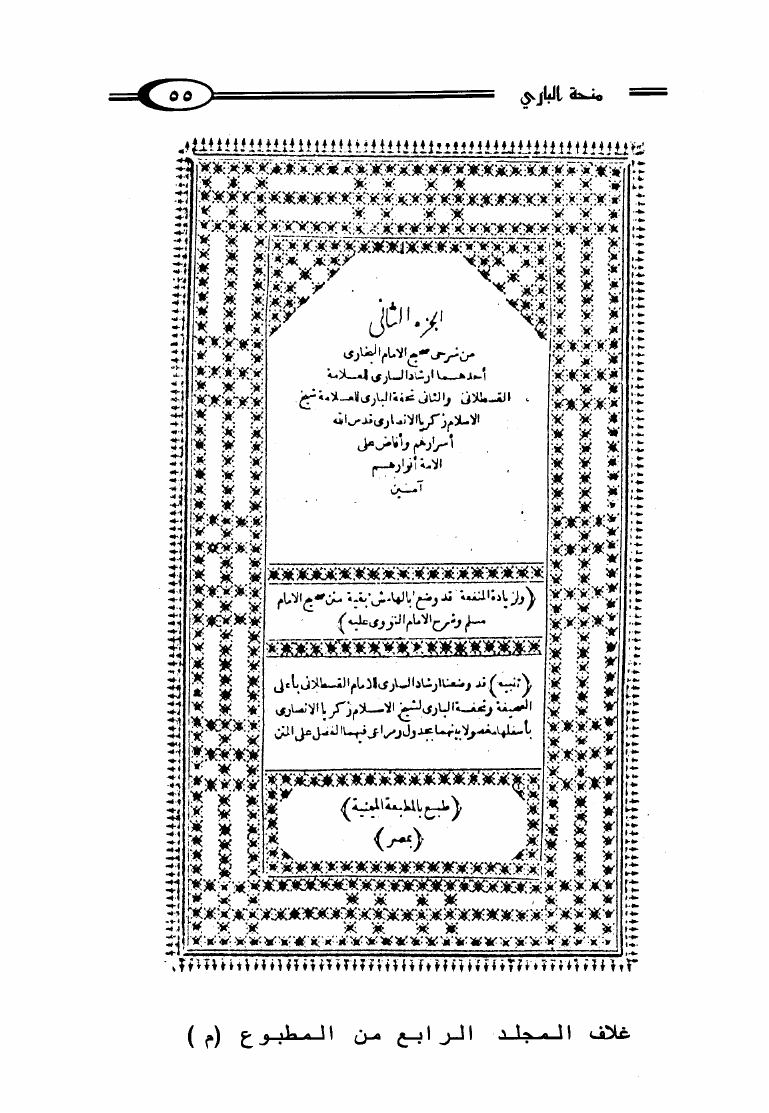 منحة الباري
٥٥
الجزء الثانى
من شرحى صحيح الامام البخارى
أحدهما ارشاد السارى للعلامة
القسطلانى والثانى تحفة البارى للعلامة شيخ
الاسلام زكريا الانصارى قدس الله
أسرارهم وأفاض على
الامة أنوارهم
آمين
(ولزيادة المنفعة قد وضع بالهامش بقية متن صحيح الامام
مسلم وشرح الامام النووى عليه)
(تنبيه) قد وضعنا ارشاد السارى للامام القسطلانى بأعلى
الصحيفة وتحفة البارى لشيخ الاسلام زكريا الانصارى
بأسفلها مفصولا بينهما بجدول ومراعى فيهما الفصل على المتن
(طبع بالمطبعة الميمنية)
(بمصر)
غلاف المجلد الرابع من المطبوع (م)